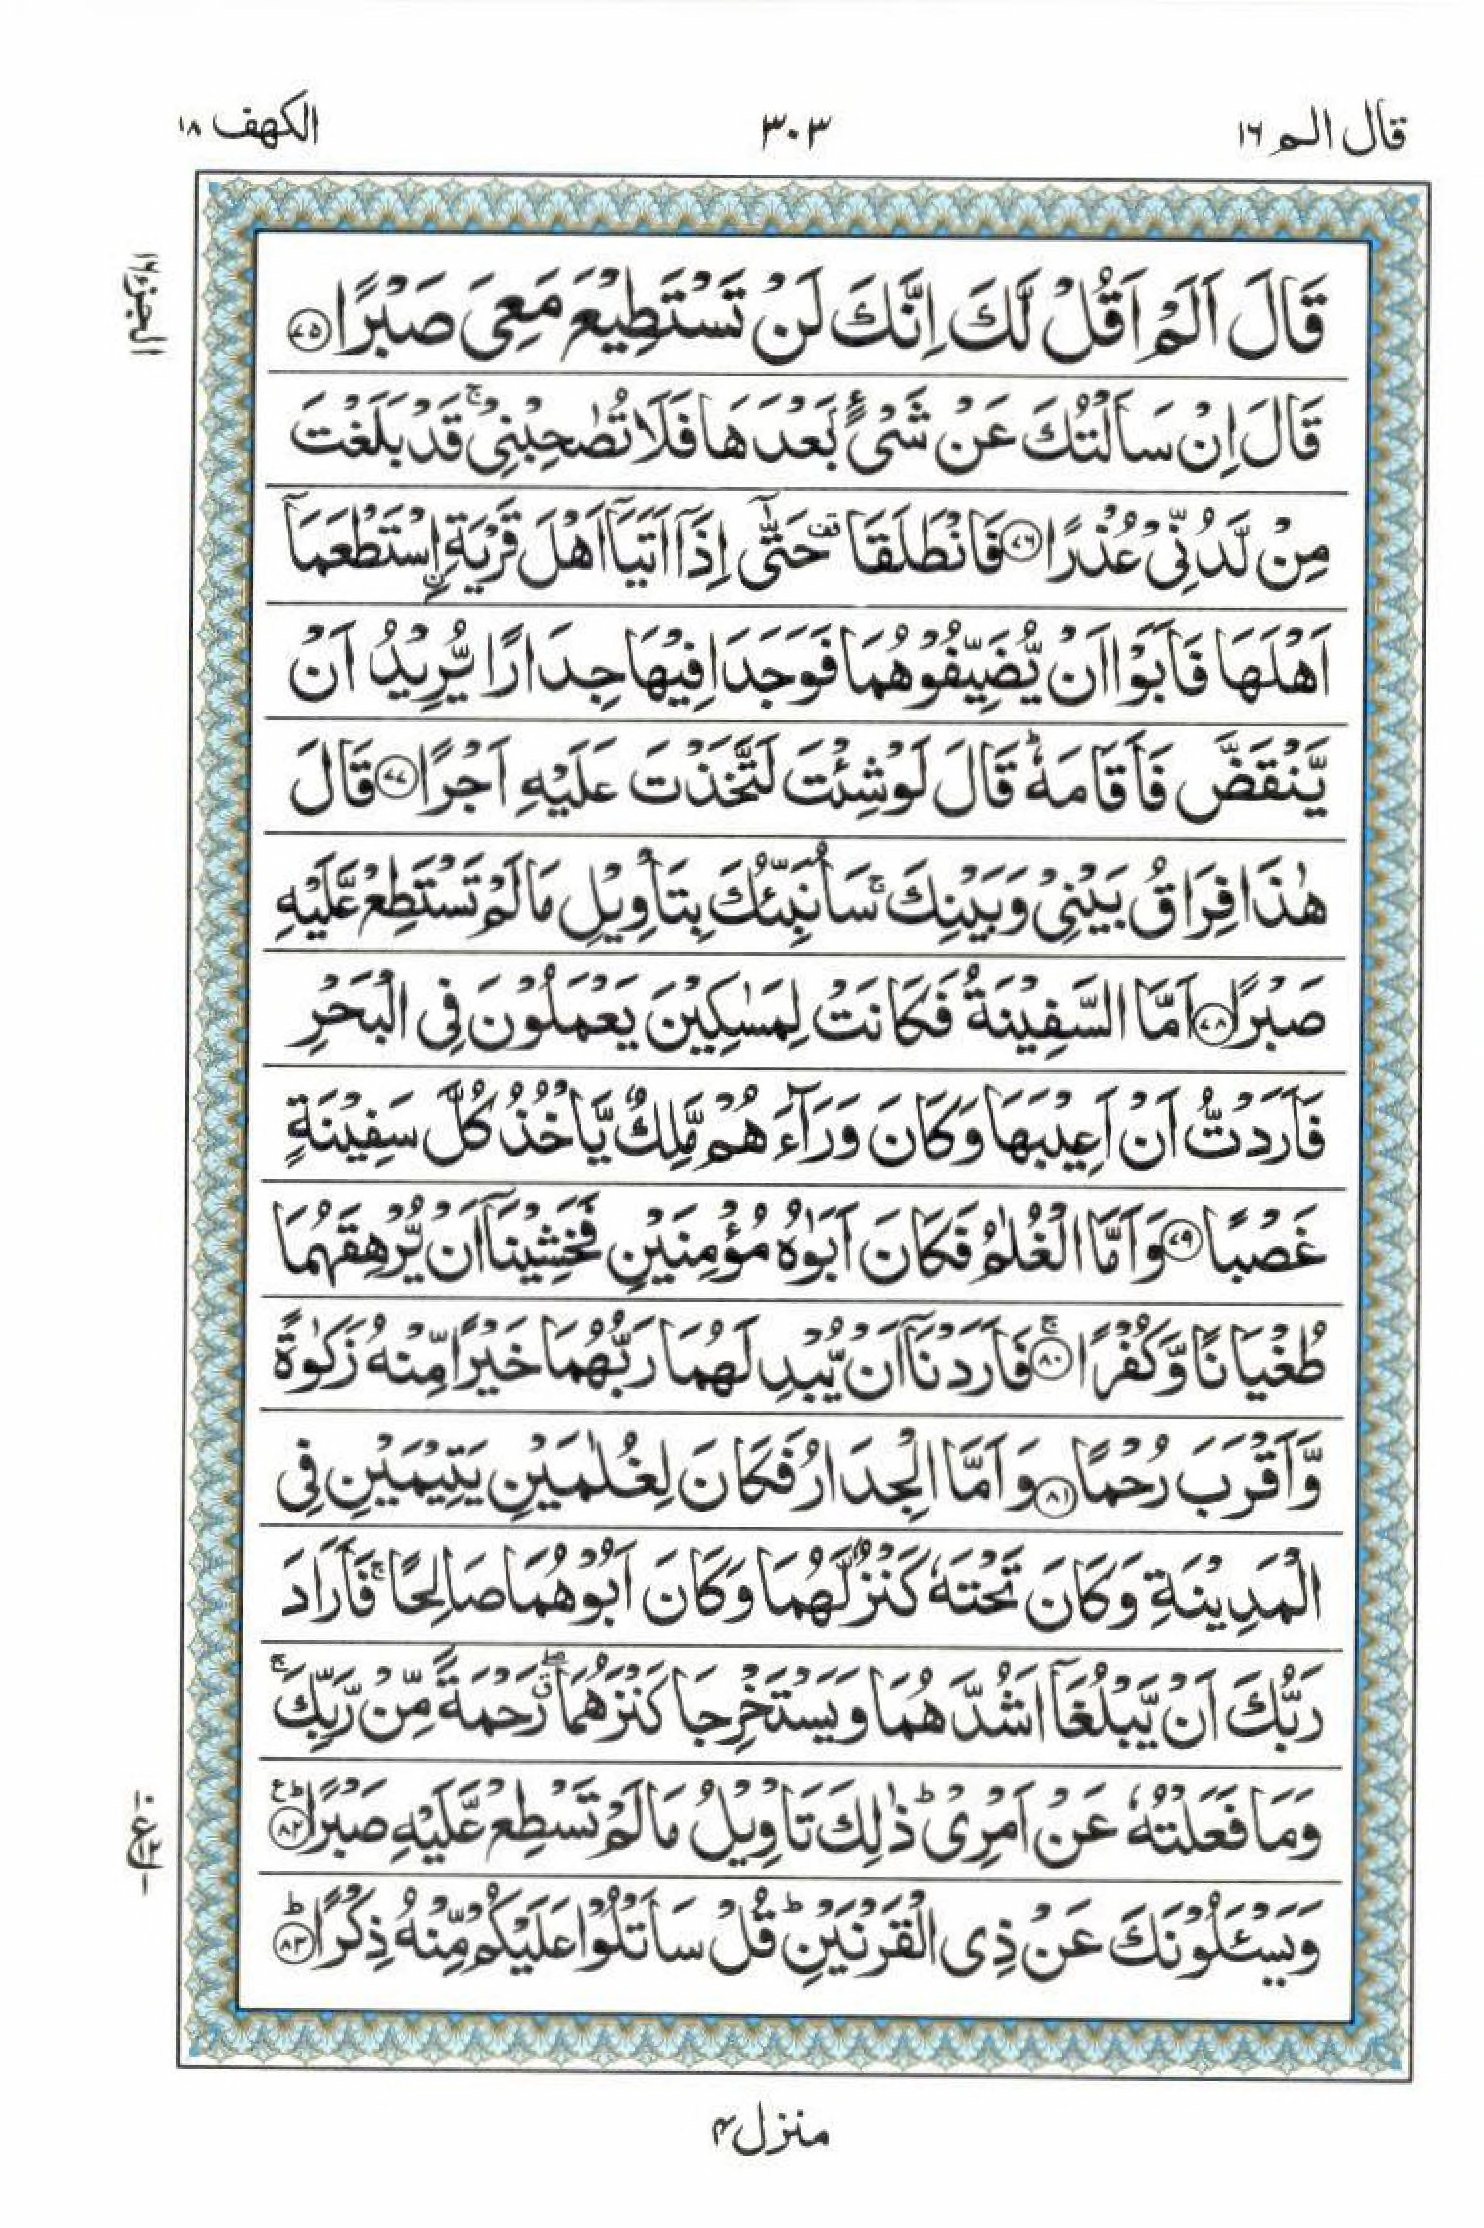 قال الم ١٦
٣٠٣
الكهف ١٨
الجزء ١٦
قَالَ اَلَمْ اَقُلْ لَّكَ اِنَّكَ لَنْ تَسْتَطِيْعَ مَعِىَ صَبْرًا ٧٥
قَالَ اِنْ سَاَلْتُكَ عَنْ شَىْءٍۭ بَعْدَهَا فَلَا تُصٰحِبْنِىْ ۚ قَدْ بَلَغْتَ
مِنْ لَّدُنِّىْ عُذْرًا ٧٦ فَانْطَلَقَا ۥقف حَتّٰٓى اِذَآ اَتَيَآ اَهْلَ قَرْيَةِ ِۨاسْتَطْعَمَآ
اَهْلَهَا فَاَبَوْا اَنْ يُّضَيِّفُوْهُمَا فَوَجَدَا فِيْهَا جِدَارًا يُّرِيْدُ اَنْ
يَّنْقَضَّ فَاَقَامَهٗ ؕ قَالَ لَوْ شِئْتَ لَتَّخَذْتَ عَلَيْهِ اَجْرًا ٧٧ قَالَ
هٰذَا فِرَاقُ بَيْنِىْ وَبَيْنِكَ ۚ سَاُنَبِّئُكَ بِتَاْوِيْلِ مَا لَمْ تَسْتَطِعْ عَّلَيْهِ
صَبْرًا ٧٨ اَمَّا السَّفِيْنَةُ فَكَانَتْ لِمَسٰكِيْنَ يَعْمَلُوْنَ فِى الْبَحْرِ
فَاَرَدْتُّ اَنْ اَعِيْبَهَا وَكَانَ وَرَآءَهُمْ مَّلِكٌ يَّاْخُذُ كُلَّ سَفِيْنَةٍ
غَصْبًا ٧٩ وَاَمَّا الْغُلٰمُ فَكَانَ اَبَوٰهُ مُؤْمِنَيْنِ فَخَشِيْنَآ اَنْ يُّرْهِقَهُمَا
طُغْيَانًا وَّكُفْرًا ۚ ٨٠ فَاَرَدْنَآ اَنْ يُّبْدِلَهُمَا رَبُّهُمَا خَيْرًا مِّنْهُ زَكٰوةً
وَّاَقْرَبَ رُحْمًا ٨١ وَاَمَّا الْجِدَارُ فَكَانَ لِغُلٰمَيْنِ يَتِيْمَيْنِ فِى
الْمَدِيْنَةِ وَكَانَ تَحْتَهٗ كَنْزٌ لَّهُمَا وَكَانَ اَبُوْهُمَا صَالِحًا ۚ فَاَرَادَ
رَبُّكَ اَنْ يَّبْلُغَآ اَشُدَّهُمَا وَيَسْتَخْرِجَا كَنْزَهُمَا ۖ ق رَحْمَةً مِّنْ رَّبِّكَ ۚ
وَمَا فَعَلْتُهٗ عَنْ اَمْرِىْ ؕ ذٰلِكَ تَاْوِيْلُ مَا لَمْ تَسْطِعْ عَّلَيْهِ صَبْرًا ؕع ٨٢
وَيَسْئَلُوْنَكَ عَنْ ذِى الْقَرْنَيْنِ ؕ قُلْ سَاَتْلُوْا عَلَيْكُمْ مِّنْهُ ذِكْرًا ؕ ٨٣
منزل ٤